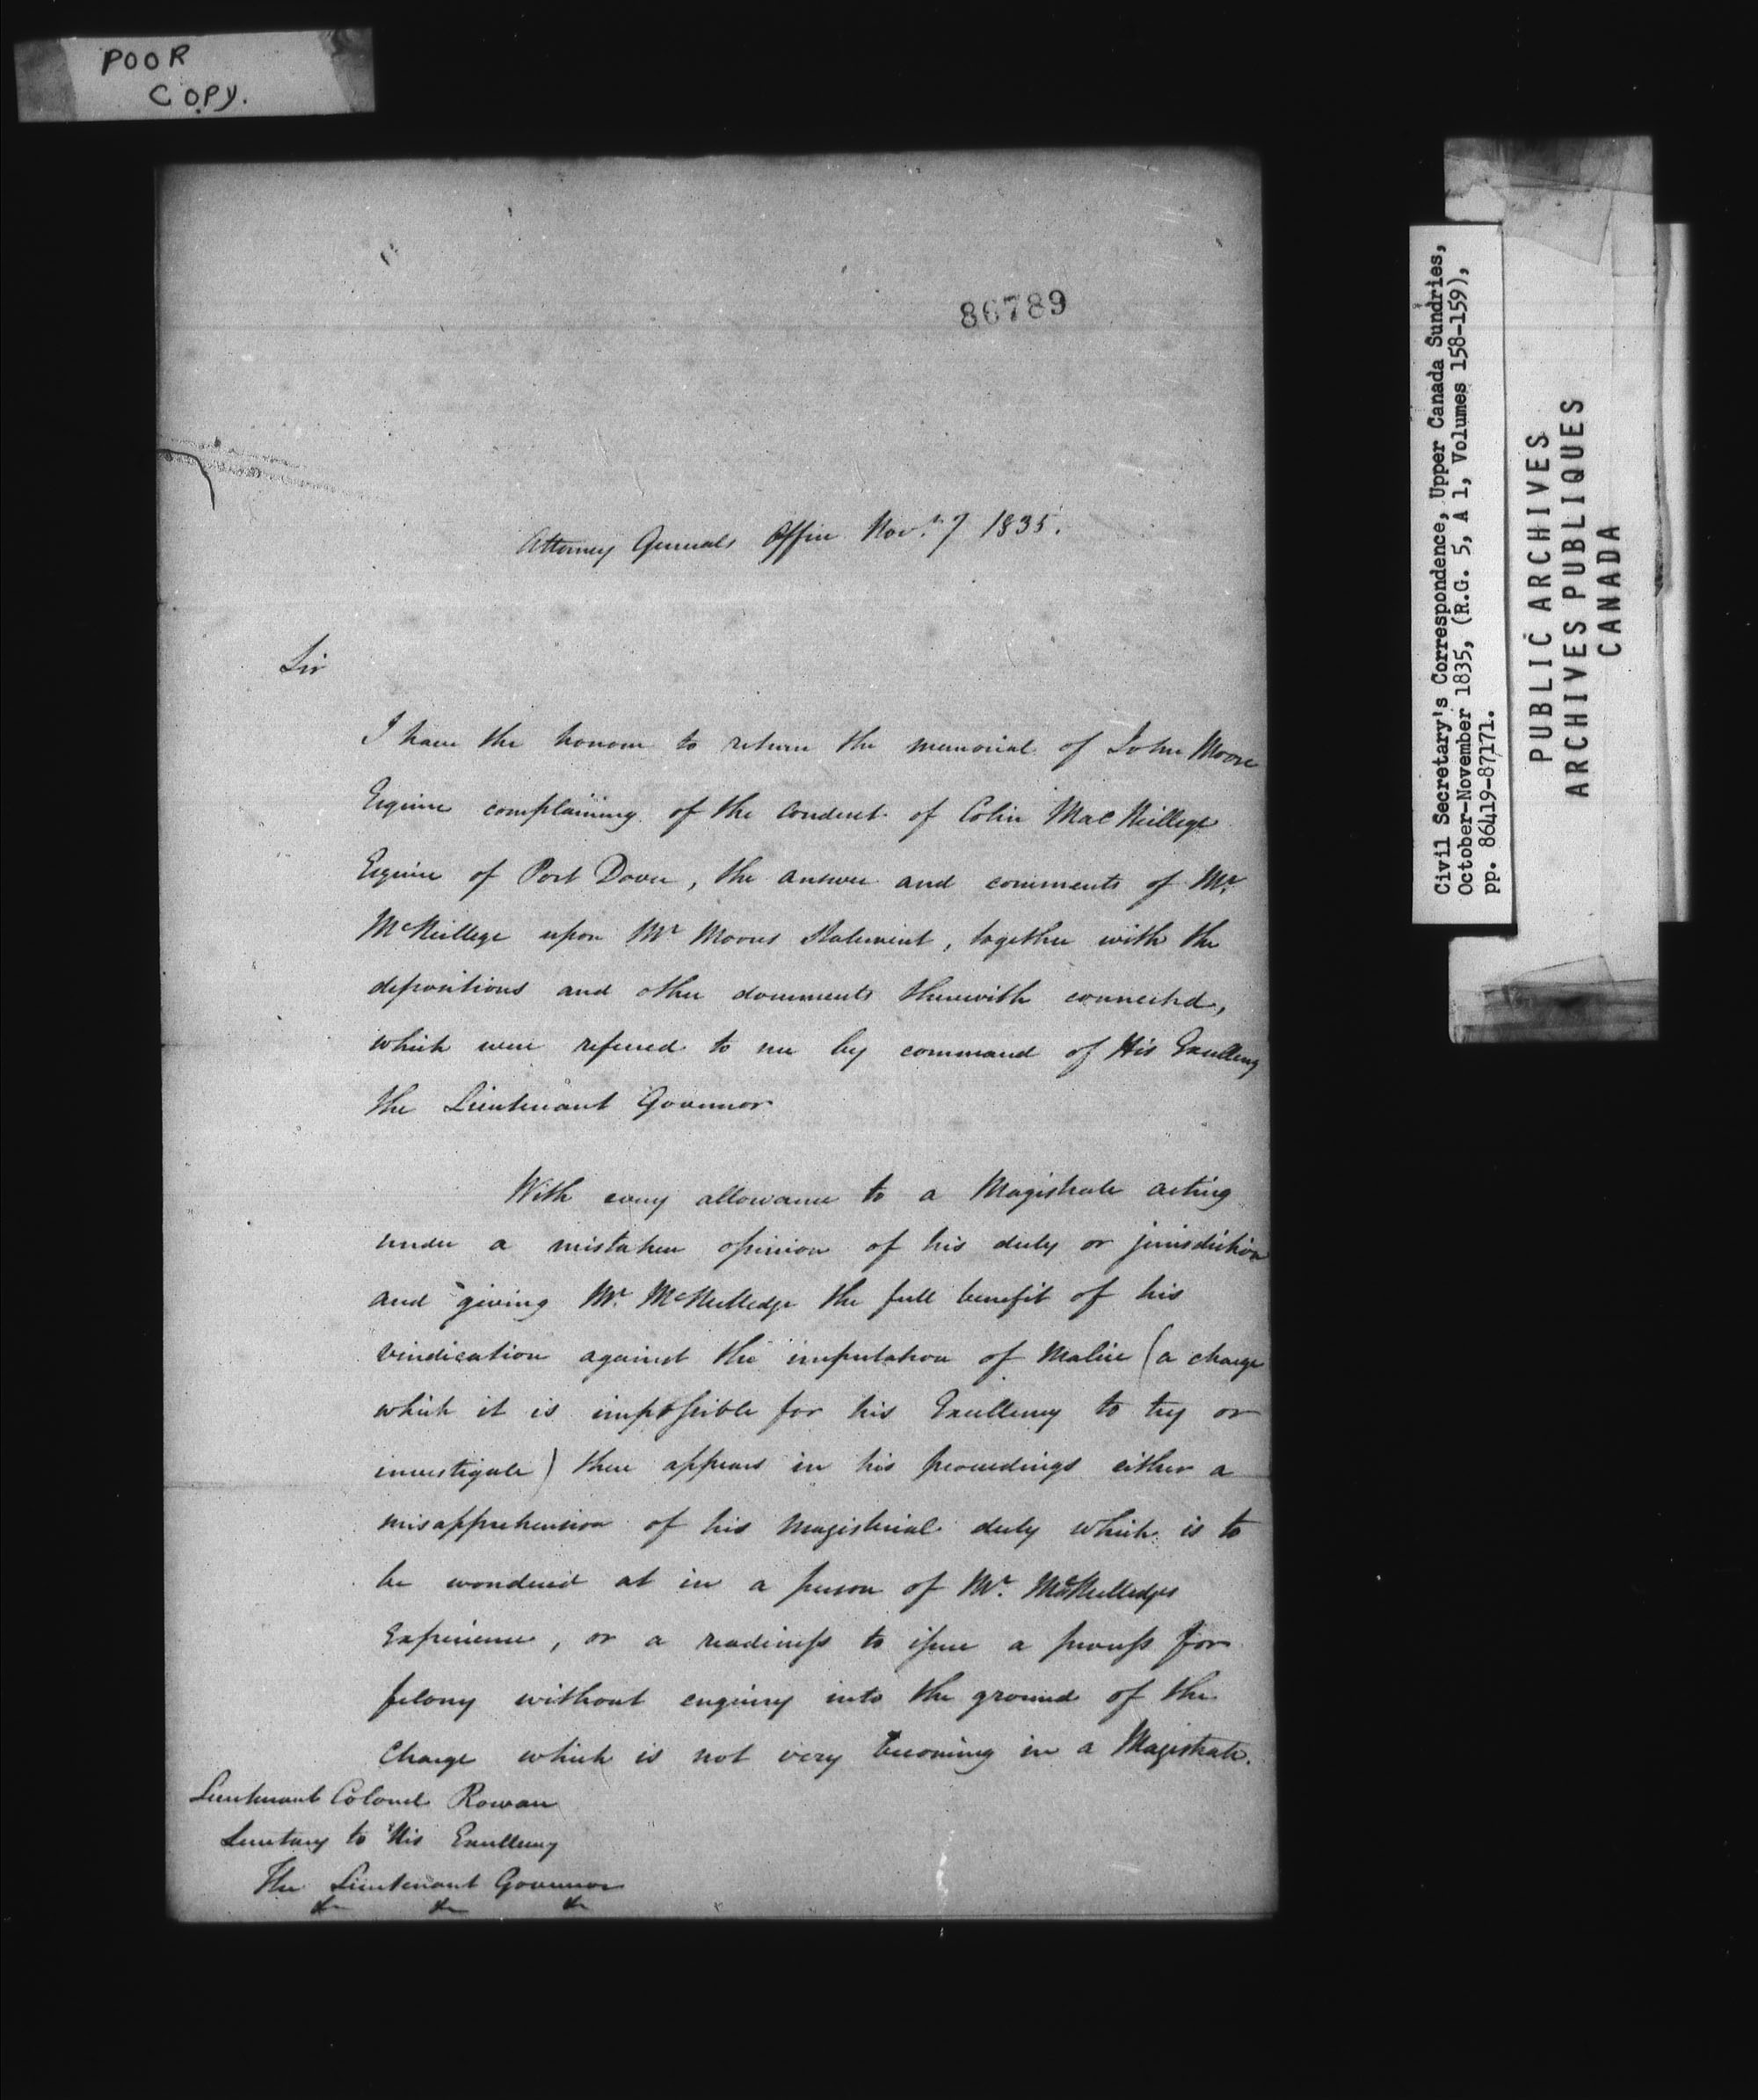 POOR
COPY.
86789
Attorney Generals Office Novr. 7 1835.
Sir
I have the honour to return the memorial of John Moore
Esquire complaining of the conduct of Colin MacNeillege
Esquire of Port Dover, the answer and comments of Mr.
McNeillege upon Mr Moores statement, together with the
depositions and other documents therewith connected,
which were referred to me by command of His Excellency
the Lieutenant Governor
With every allowance to a Magistrate acting
under a mistaken opinion of his duty or jurisdiction
and giving Mr. McNeilledge the full benefit of his
vindication against the imputation of malice (a charge
which it is impossible for his Excellency to try or
investigate) there appears in his proceedings either a
misapprehension of his magisterial duty which is to
be wondered at in a person of Mr. McNeilledges
Experience, or a readiness to issue a process for
felony without enquiry into the ground of the
Charge which is not very becoming in a Magistrate.
Lieutenant Colonel Rowan
Secretary to His Excellency
The Lieutenant Governor
&c &c &c
Civil Secretary's Correspondence, Upper Canada Sundries,
October-November 1835, (R.G. 5, A 1, Volumes 158-159),
pp. 86419-87171.
PUBLIC ARCHIVES
ARCHIVES PUBLIQUES
CANADA